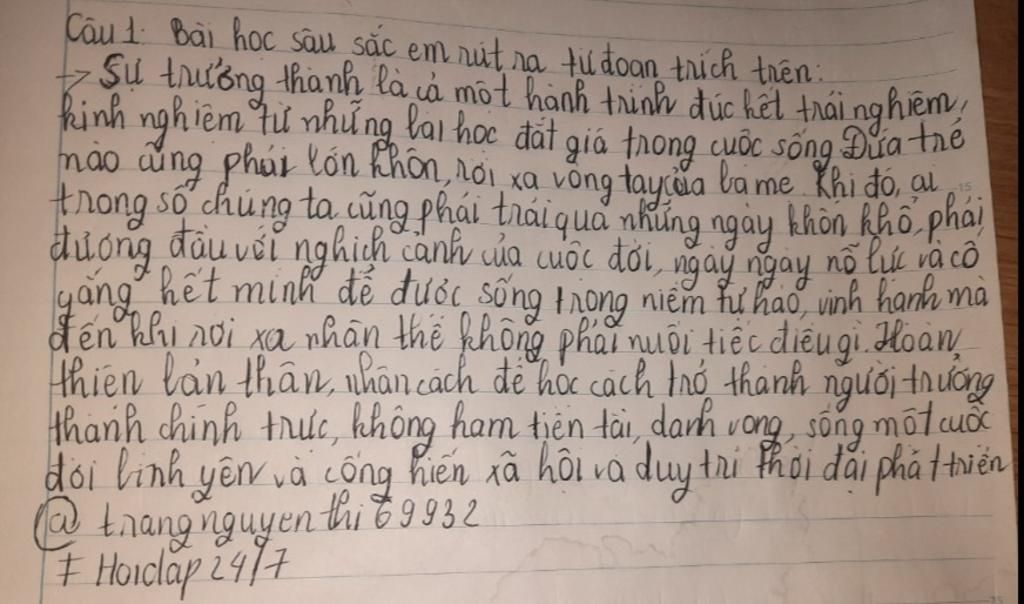 Câu 1: Bài học sâu sắc em rút ra từ đoạn trích trên:
-> Sự trưởng thành là cả một hành trình đúc kết trải nghiệm,
kinh nghiệm từ những bài học đắt giá trong cuộc sống. Đứa trẻ
nào cũng phải lớn khôn, rời xa vòng tay của ba mẹ. Khi đó, ai
trong số chúng ta cũng phải trải qua những ngày khốn khổ, phải
đương đầu với nghịch cảnh của cuộc đời, ngày ngày nỗ lực và cố
gắng hết mình để được sống trong niềm tự hào, vinh hạnh mà
đến khi rời xa nhân thế không phải nuối tiếc điều gì. Hoàn
thiện bản thân, nhân cách để học cách trở thành người trưởng
thành chính trực, không ham tiền tài, danh vọng, sống một cuộc
đời bình yên và cống hiến xã hội và duy trì thời đại phát triển
@ trangnguyenthi69932
# Hoidap 24/7